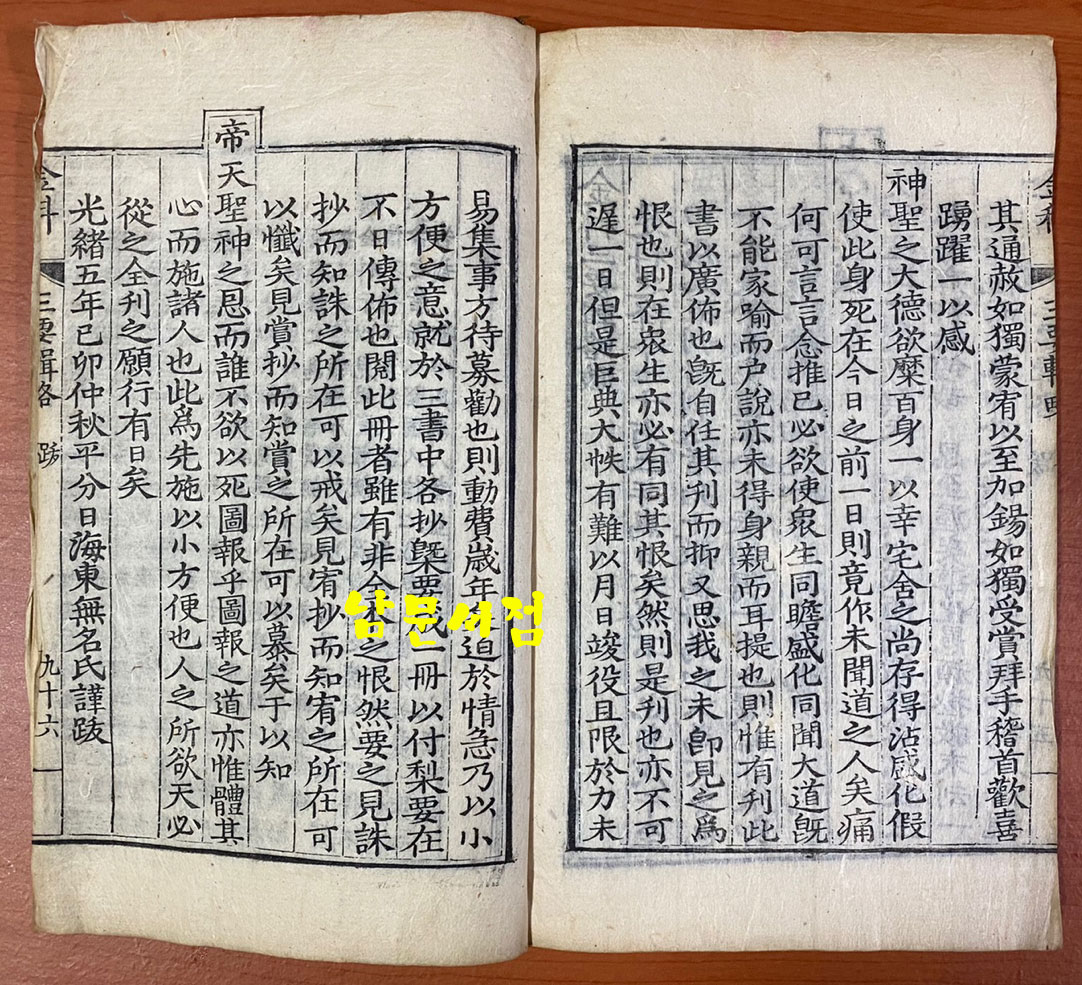 其通赦如獨蒙宥以至加錫如獨受賞拜手稽首歡喜
踴躍一以感
神聖之大德欲糜百身一以幸宅舍之尚存得沾感化假
使此身死在今日之前一日則竟作未聞道之人矣痛
何可言言念推己必欲使衆生同瞻盛化同聞大道旣
不能家喻而户說亦未得身親而耳提也則惟有刋此
書以廣佈也旣自任其刋而抑又思我之未卽見之爲
恨也則在衆生亦必有同其恨矣然則是刋也亦不可
遲一日但是巨典大帙有難以月日竣役且限於力未
易集事方待募勸也則動費歲年迫於情急乃以小
方便之意就於三書中各抄槩要成一冊以付梨要在
不日傳佈也閱此冊者雖有非全本之恨然要之見誅
抄而知誅之所在可以戒矣見宥抄而知宥之所在可
以懺矣見賞抄而知賞之所在可以慕矣于以知
帝天聖神之恩而誰不欲以死圖報乎圖報之道亦惟體其
心而施諸人也此爲先施以小方便也人之所欲天必
從之全刋之願行有日矣
光緖五年己卯仲秋平分日海東無名氏謹跋
金科 三要輯略 跋 九十六
남문서점